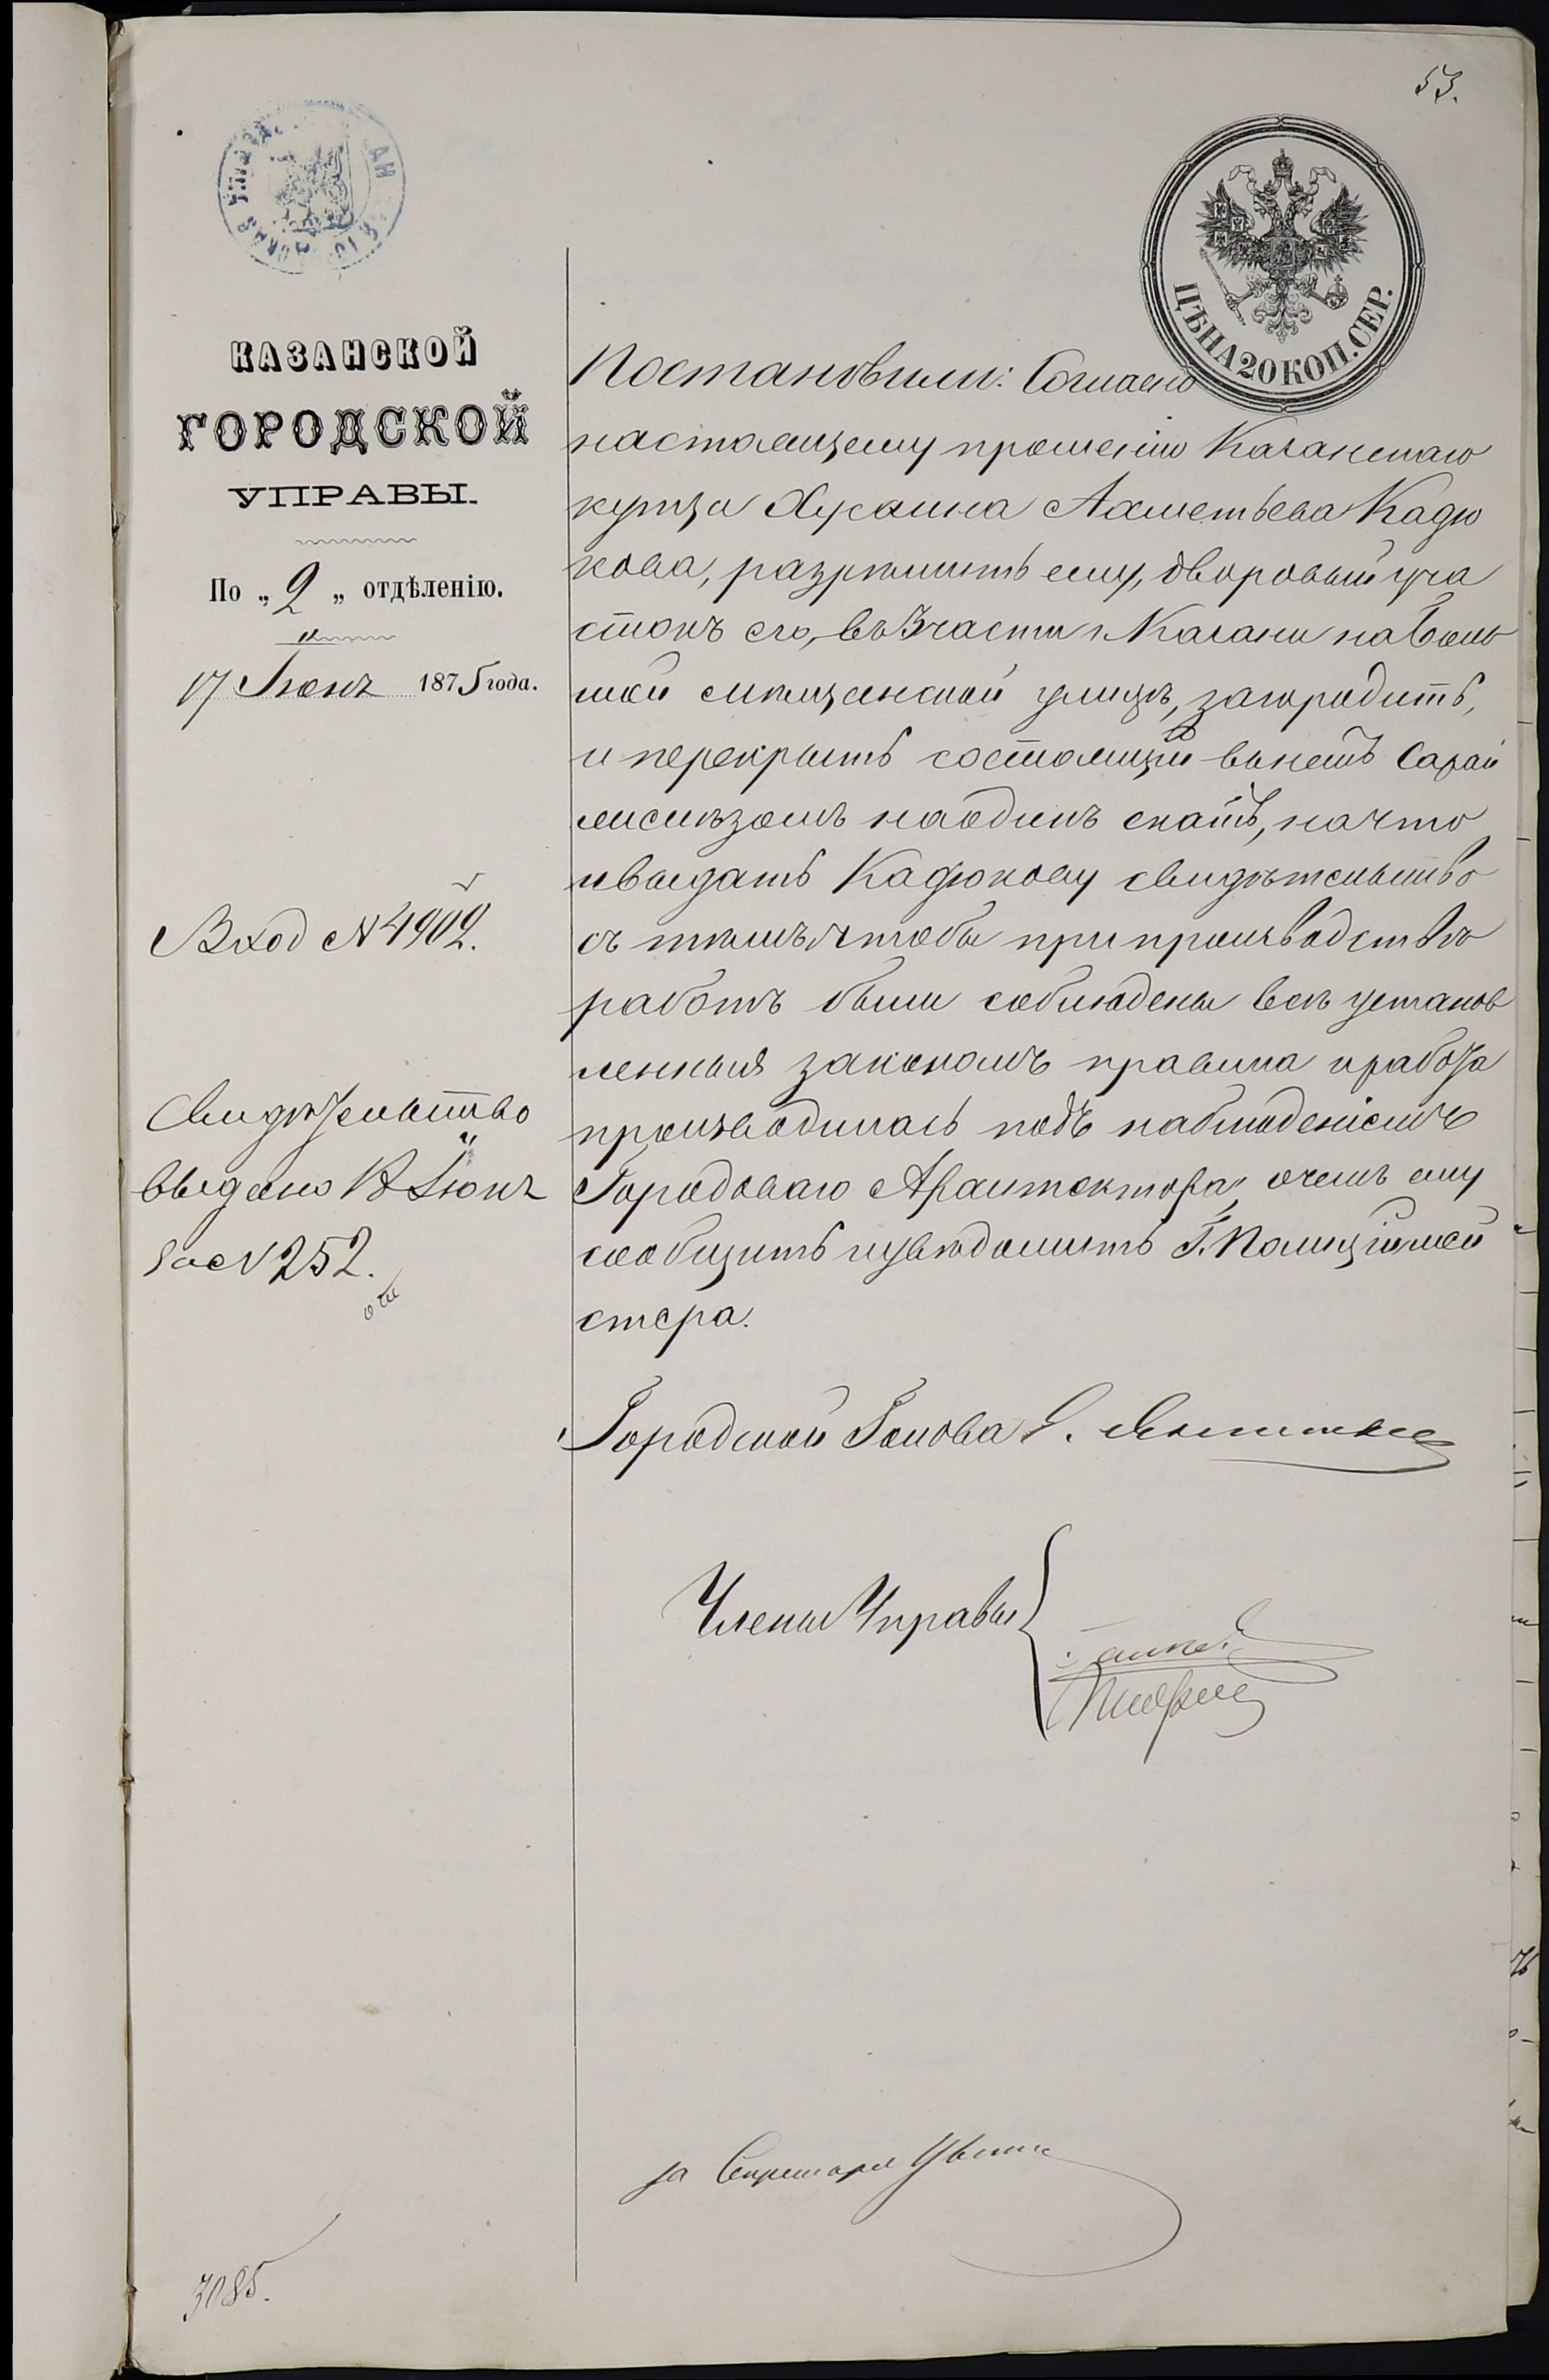 53.
ЦѢНА 20 КОП. СЕР.
КАЗАНСКОЙ
ГОРОДСКОЙ
УПРАВЫ.
По „2„ отдѣленію.
17 Іюня 1875 года.
Вход № 4902.
Свидѣтельство
выдано 18 Іюня
за № 252.
Постановили: Согласно
настоящему прошенію Казанскаго
купца Хусаина Ахметьева Кадю
кова, разрѣшить ему, дворовый уча
стокъ его, въ 3 части г. Казани на Боль
шой мѣщанской улицѣ, загородить,
и перекрыть состоящій въ немъ Сарай
желѣзомъ на одинъ скатъ, на что
и выдать Кадюкову свидѣтельство
съ тѣмъ, чтобы при производствѣ
работъ были соблюдены всѣ установ
ленныя закономъ правила и работа
производилась подъ наблюденіемъ
Городоваго Архитектора, о чемъ ему
сообщить и увѣдомить Г. Полиціймей
стера.
Городской Голова Э. Янишевскій
Члены Управы
за Секретаря
3085.